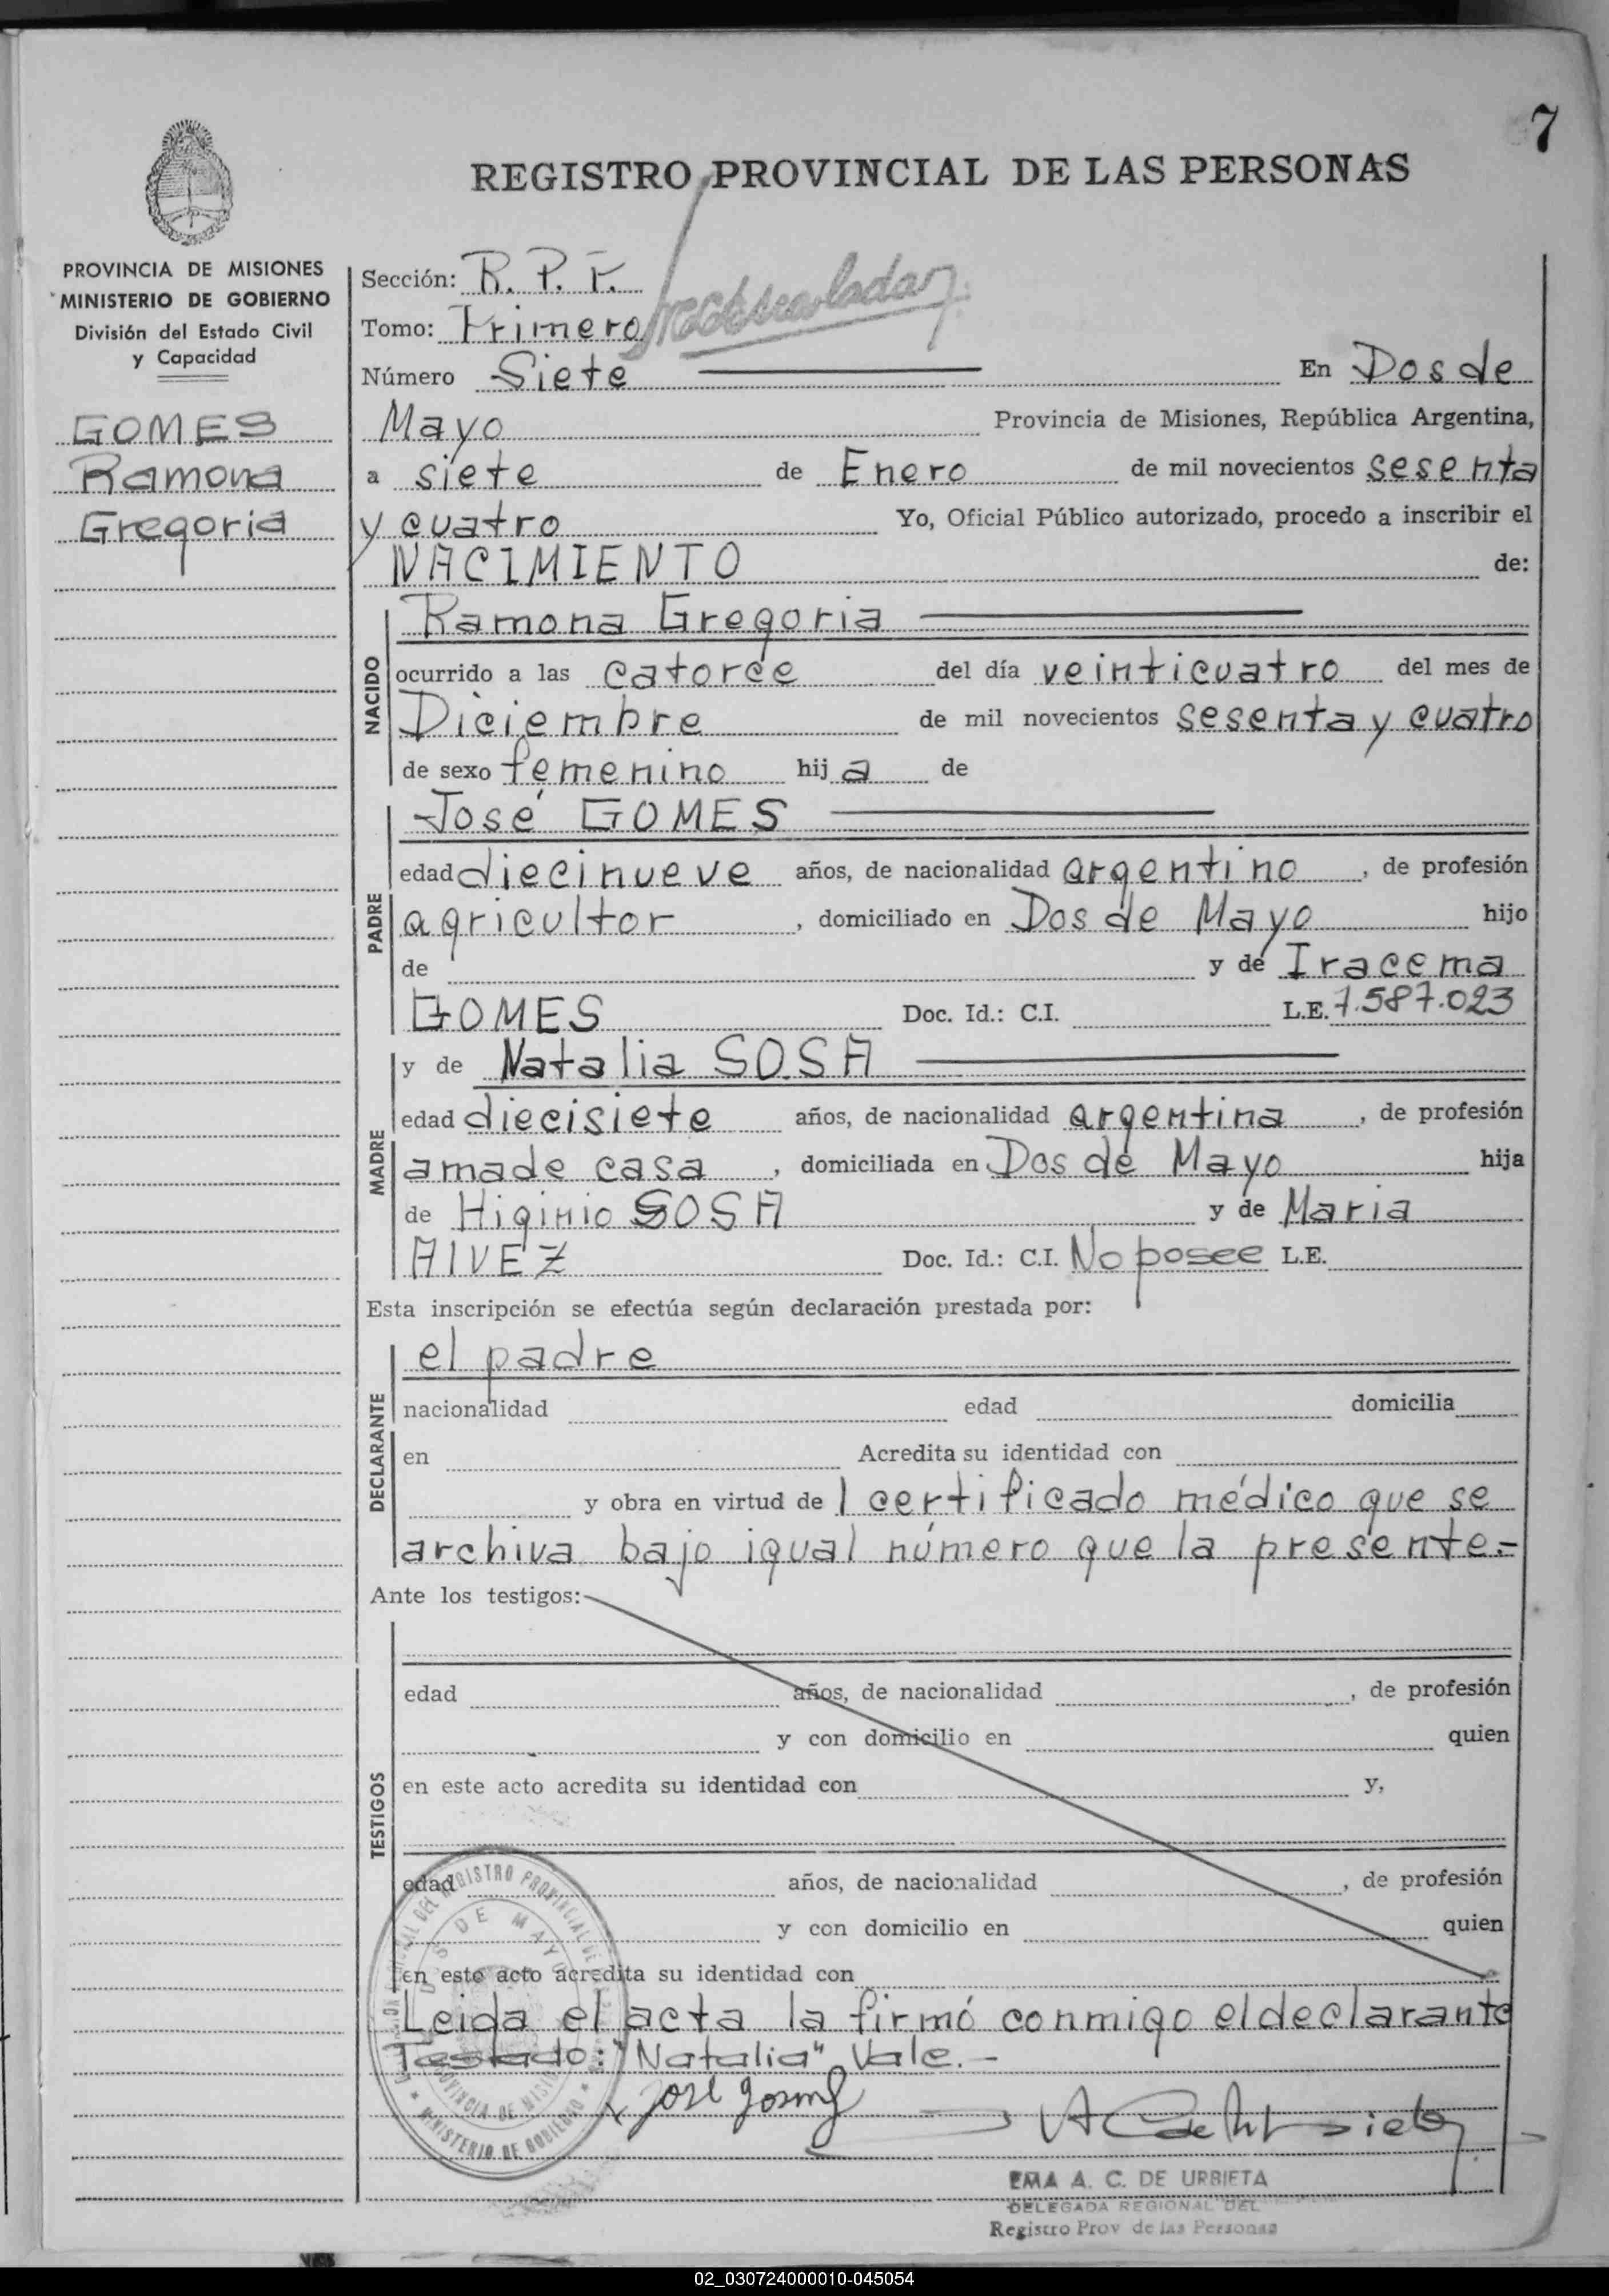 7
REGISTRO PROVINCIAL DE LAS PERSONAS
PROVINCIA DE MISIONES
MINISTERIO DE GOBIERNO
División del Estado Civil
y Capacidad
GOMES
Ramona
Gregoria
Sección: R. P. F.
Tomo: Primero
Número Siete En Dos de
Mayo Provincia de Misiones, República Argentina,
a siete de Enero de mil novecientos sesenta
y cuatro Yo, Oficial Público autorizado, procedo a inscribir el
NACIMIENTO de:
NACIDO
Ramona Gregoria
ocurrido a las catorce del día veinticuatro del mes de
Diciembre de mil novecientos sesenta y cuatro
de sexo femenino hij a de
PADRE
José GOMES
edad diecinueve años, de nacionalidad argentino, de profesión
agricultor, domiciliado en Dos de Mayo hijo
de y de Iracema
GOMES Doc. Id.: C.I. L.E. 7.587.023
MADRE
y de Natalia SOSA
edad diecisiete años, de nacionalidad argentina, de profesión
ama de casa, domiciliada en Dos de Mayo hija
de Higinio SOSA y de Maria
AlVEZ Doc. Id.: C.I. No posee L.E.
Esta inscripción se efectúa según declaración prestada por:
DECLARANTE
el padre
nacionalidad edad domicilia
en Acredita su identidad con
y obra en virtud de 1 certificado médico que se
archiva bajo igual número que la presente.=
Ante los testigos:
TESTIGOS
edad años, de nacionalidad , de profesión
y con domicilio en quien
en este acto acredita su identidad con y,
edad años, de nacionalidad , de profesión
y con domicilio en quien
en este acto acredita su identidad con
Leida el acta la firmó conmigo el declarante
Testado: "Natalia" Vale.-
DEL REGISTRO PROVINCIAL DE
DOS DE MAYO
PROVINCIA DE MISIONES
MINISTERIO DE GOBIERNO
EMA A. C. DE URBIETA
DELEGADA REGIONAL DEL
Registro Prov de las Personas
02_030724000010-045054